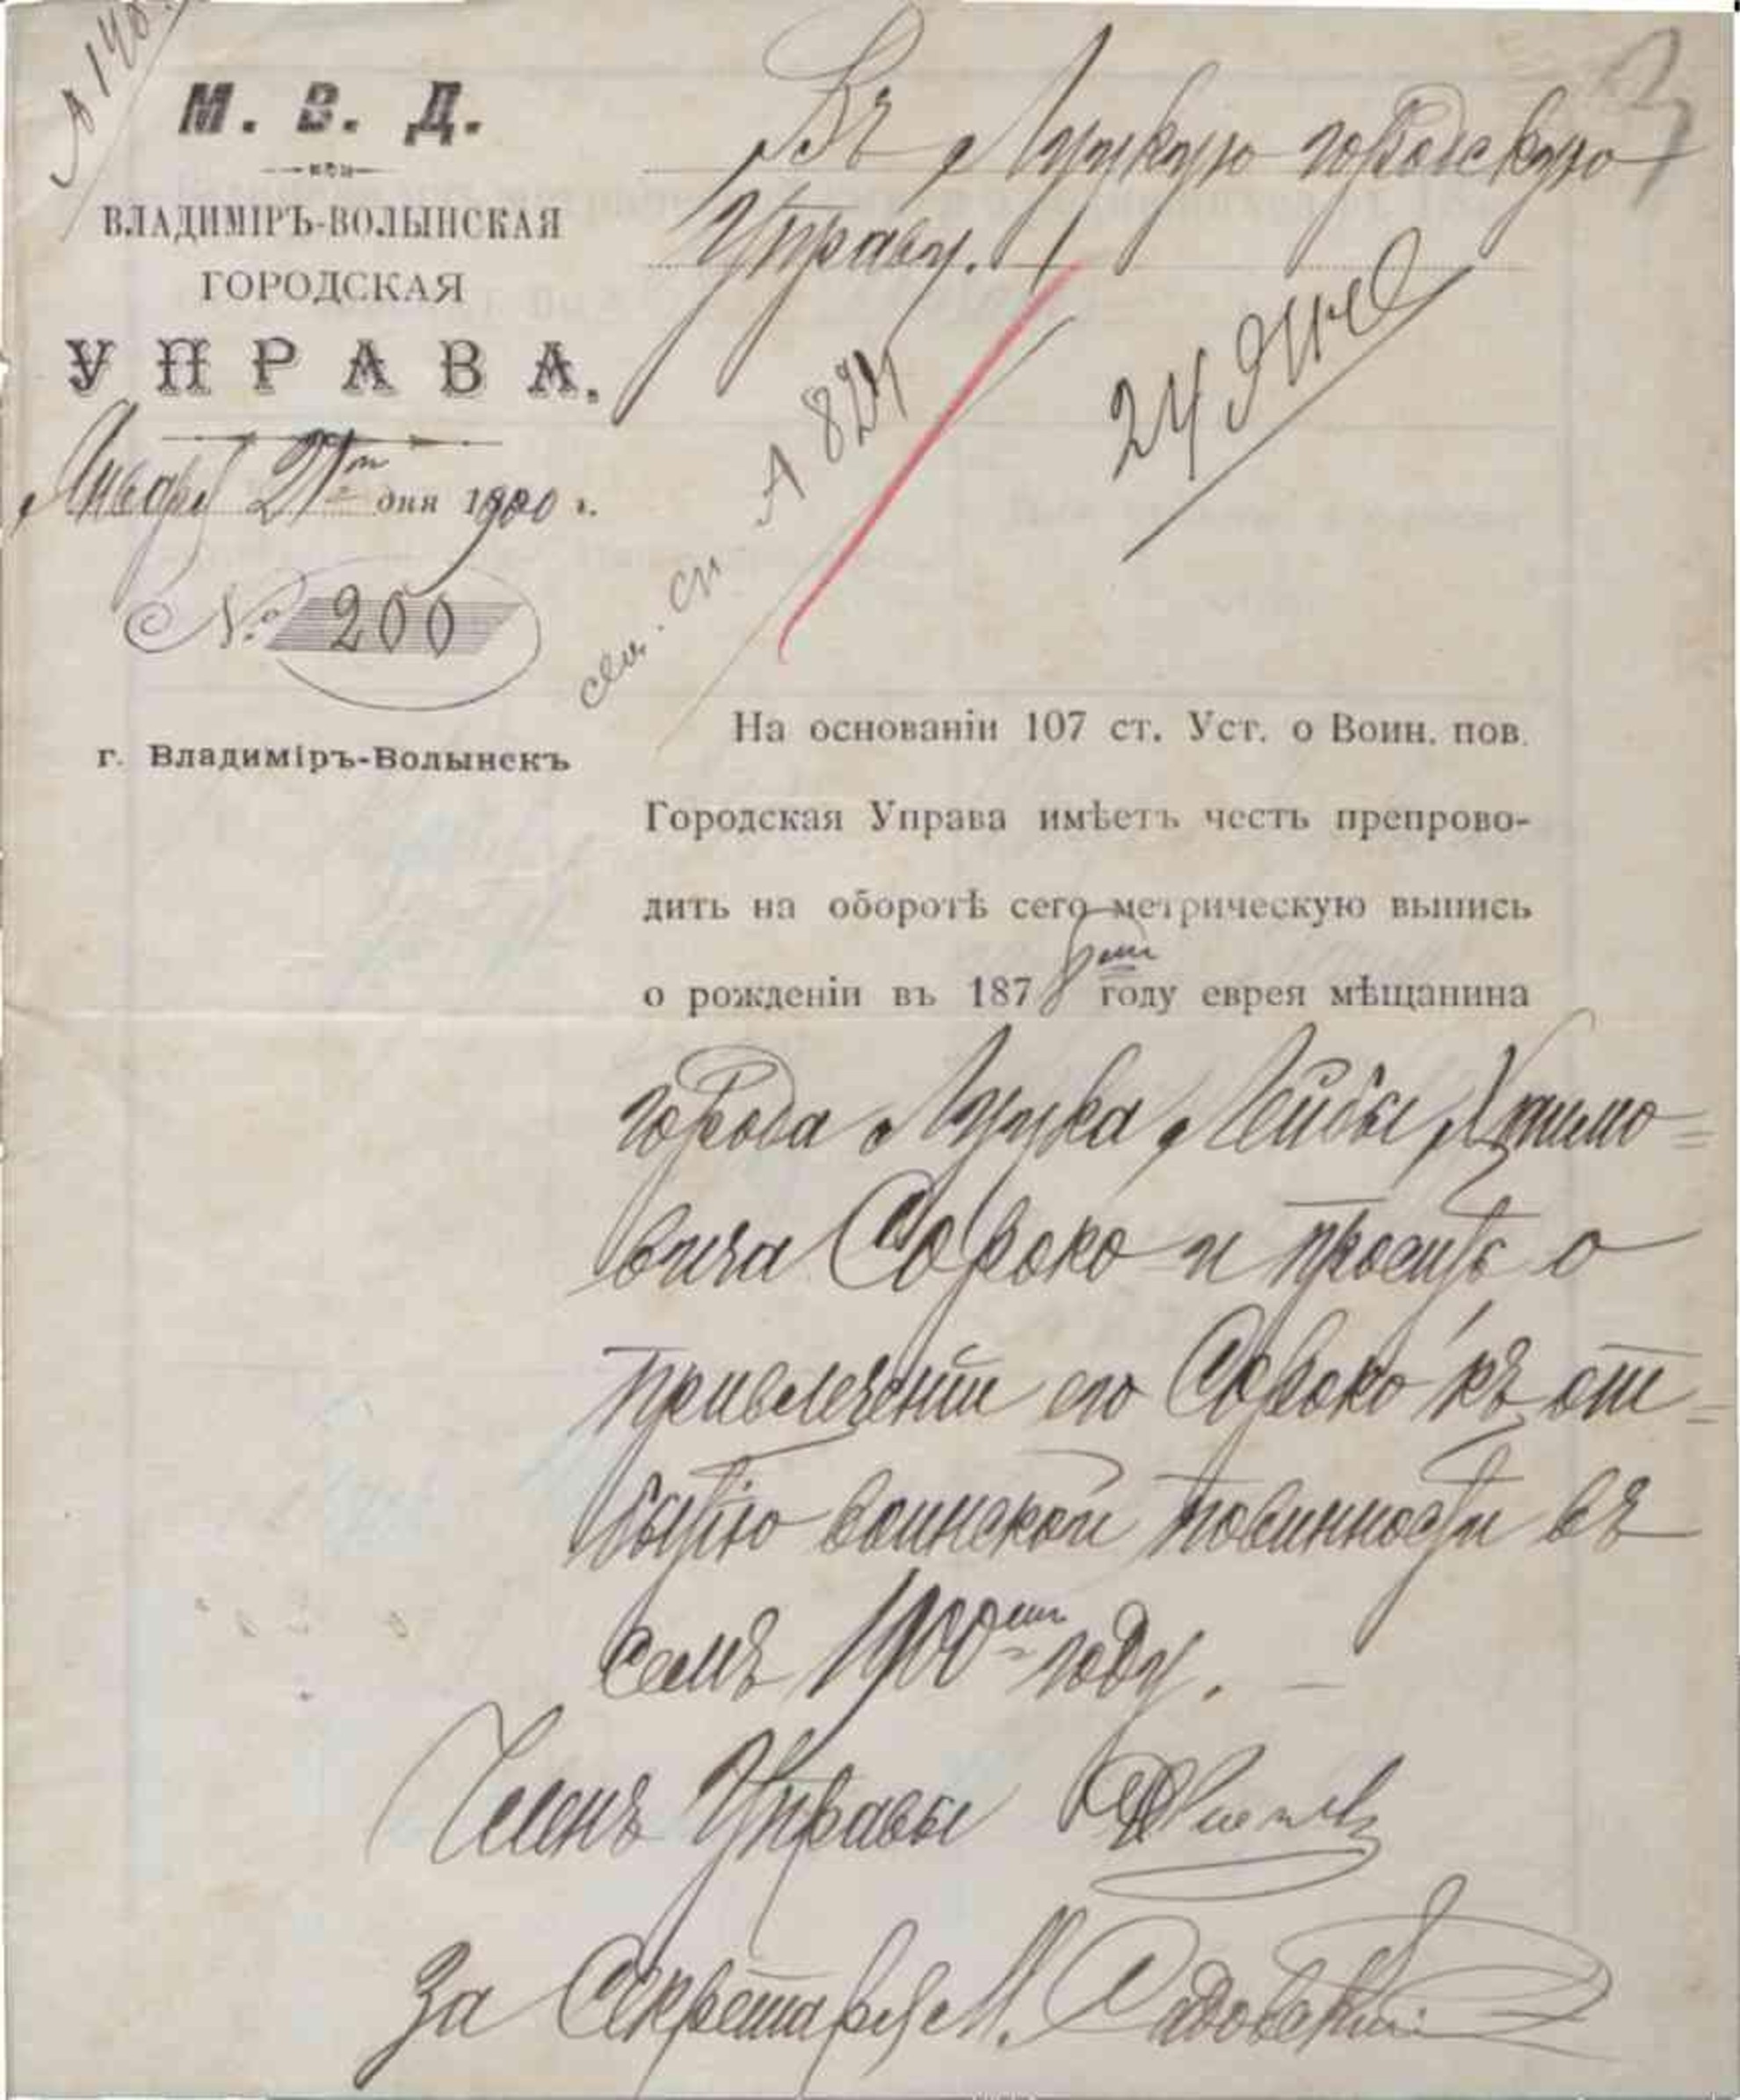 М. В. Д.
ВЛАДИМІРЪ-ВОЛЫНСКАЯ
ГОРОДСКАЯ
УПРАВА.
Января 21го дня 1900 г.
№ 200
г. Владиміръ-Волынскъ
Въ Луцкую городскую
Управу.
24 Янв
А 821
сем. сп
На основаніи 107 ст. Уст. о Воин. пов.
Городская Управа имѣетъ честь препрово-
дить на оборотѣ сего метрическую выпись
о рожденіи въ 1878мъ году еврея мѣщанина
города Луцка Лейбы Хаимо=
вича Сороко и проситъ о
привлеченіи его Сороко къ от=
бытію воинской повинности въ
семъ 1900мъ году.
Членъ Управы
За Секретаря М. Садовскій